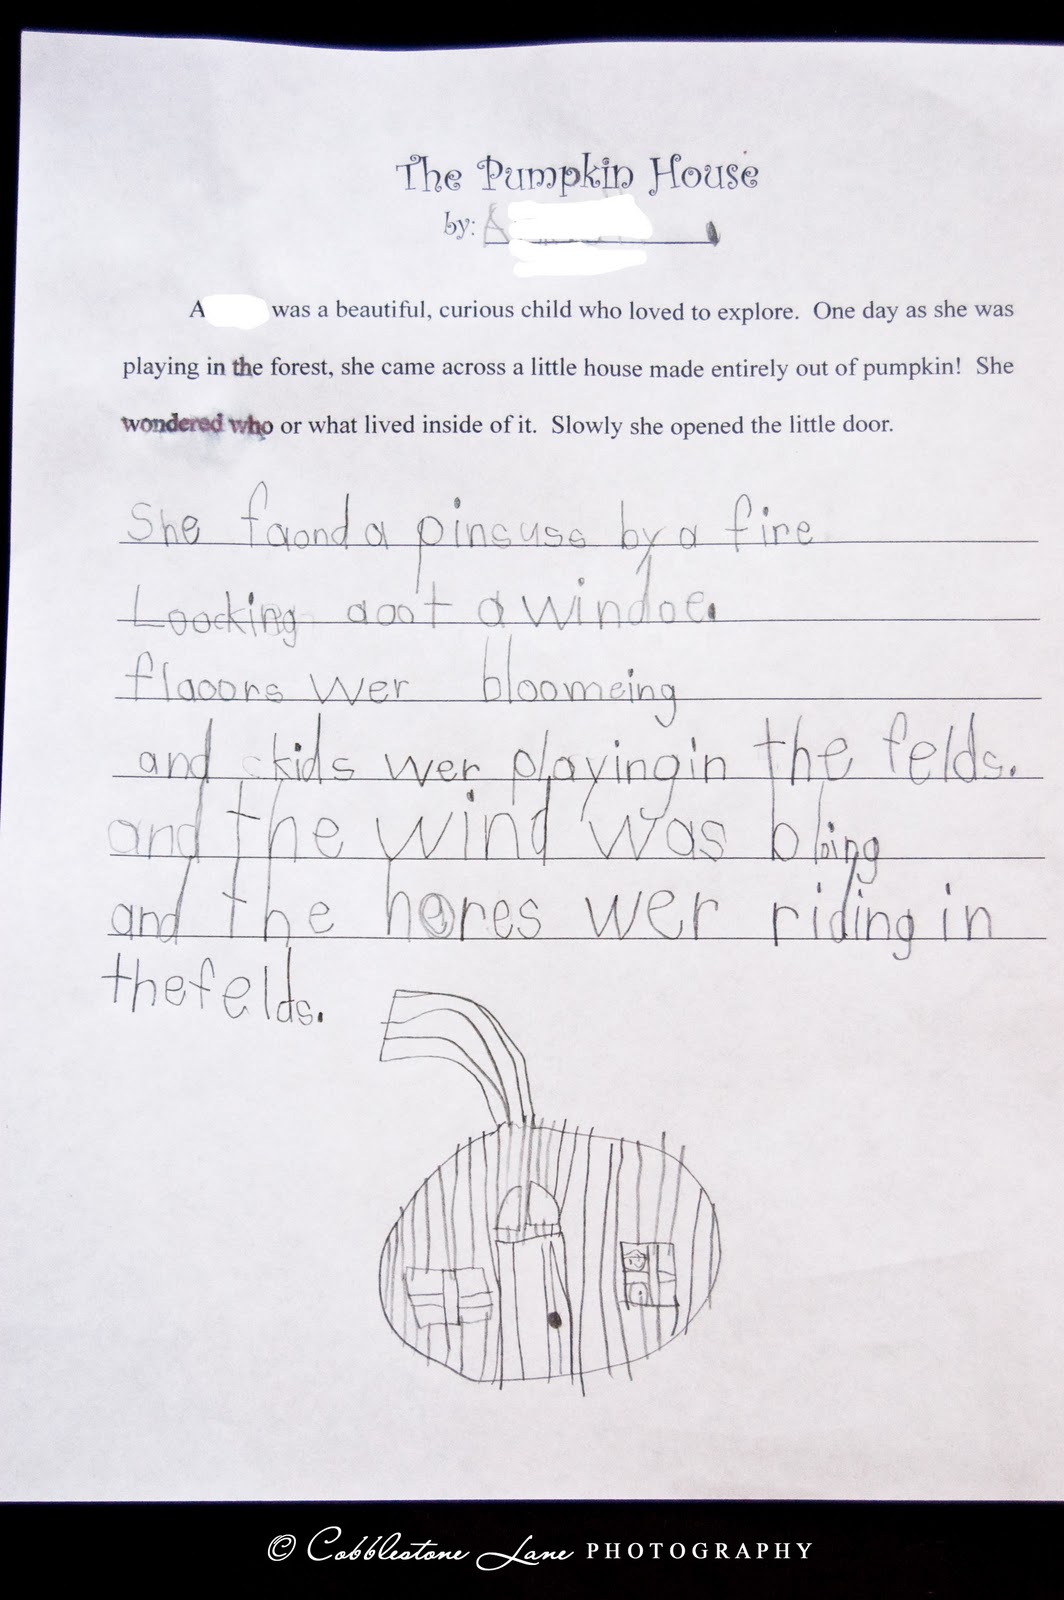 The Pumpkin House
by: A
A was a beautiful, curious child who loved to explore. One day as she was
playing in the forest, she came across a little house made entirely out of pumpkin! She
wondered who or what lived inside of it. Slowly she opened the little door.
She faond a pinsuss by a fire
Loocking aoot a windoe.
flaoors wer bloomeing
and kids wer playing in the felds.
and the wind was bloing
and the hores wer riding in
the felds.
© Cobblestone Lane PHOTOGRAPHY